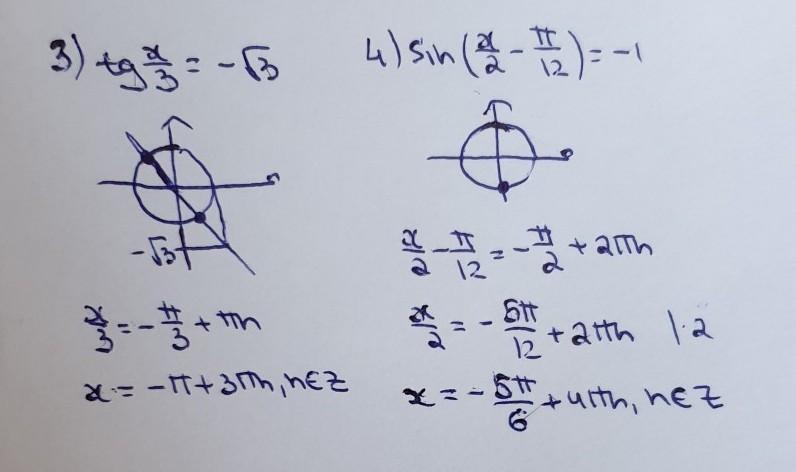 3) tg x/3 = -√3
-√3
x/3 = -π/3 + πn
x = -π + 3πn, n∈Z
4) sin(x/2 - π/12) = -1
x/2 - π/12 = -π/2 + 2πn
x/2 = -5π/12 + 2πn |·2
x = -5π/6 + 4πn, n∈Z